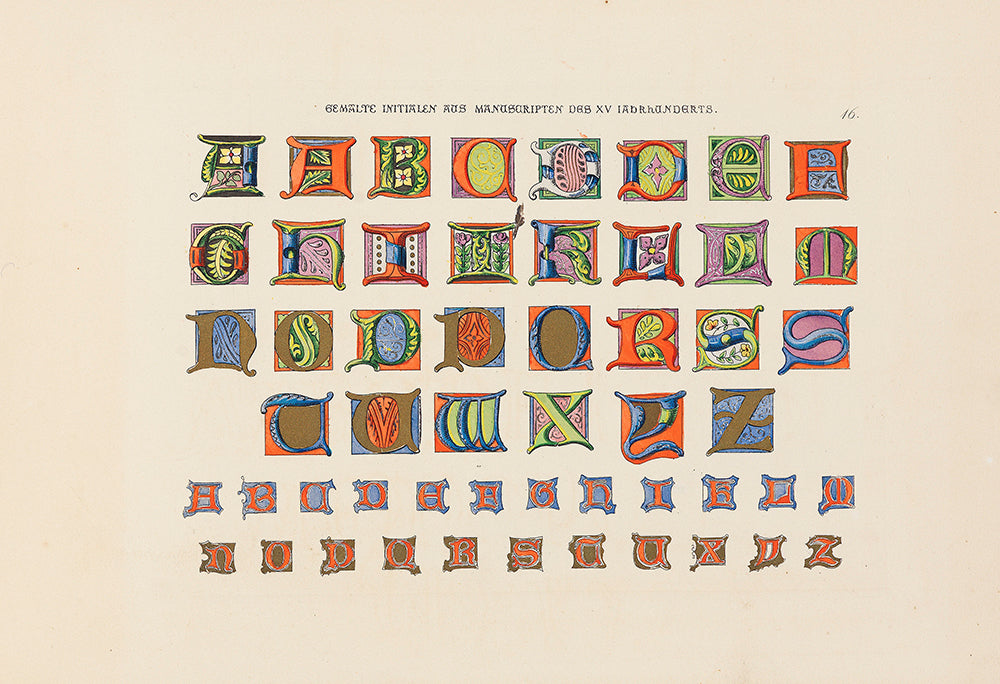 GEMALTE INITIALEN AUS MANUSCRIPTEN DES XV IAHRHUNDERTS.
16.
A A B C D E F
G H I K L M
N O P P Q R S S
T U W X Y Z
A B C D E F G H I K L M
N O P Q R S T U X Y Z